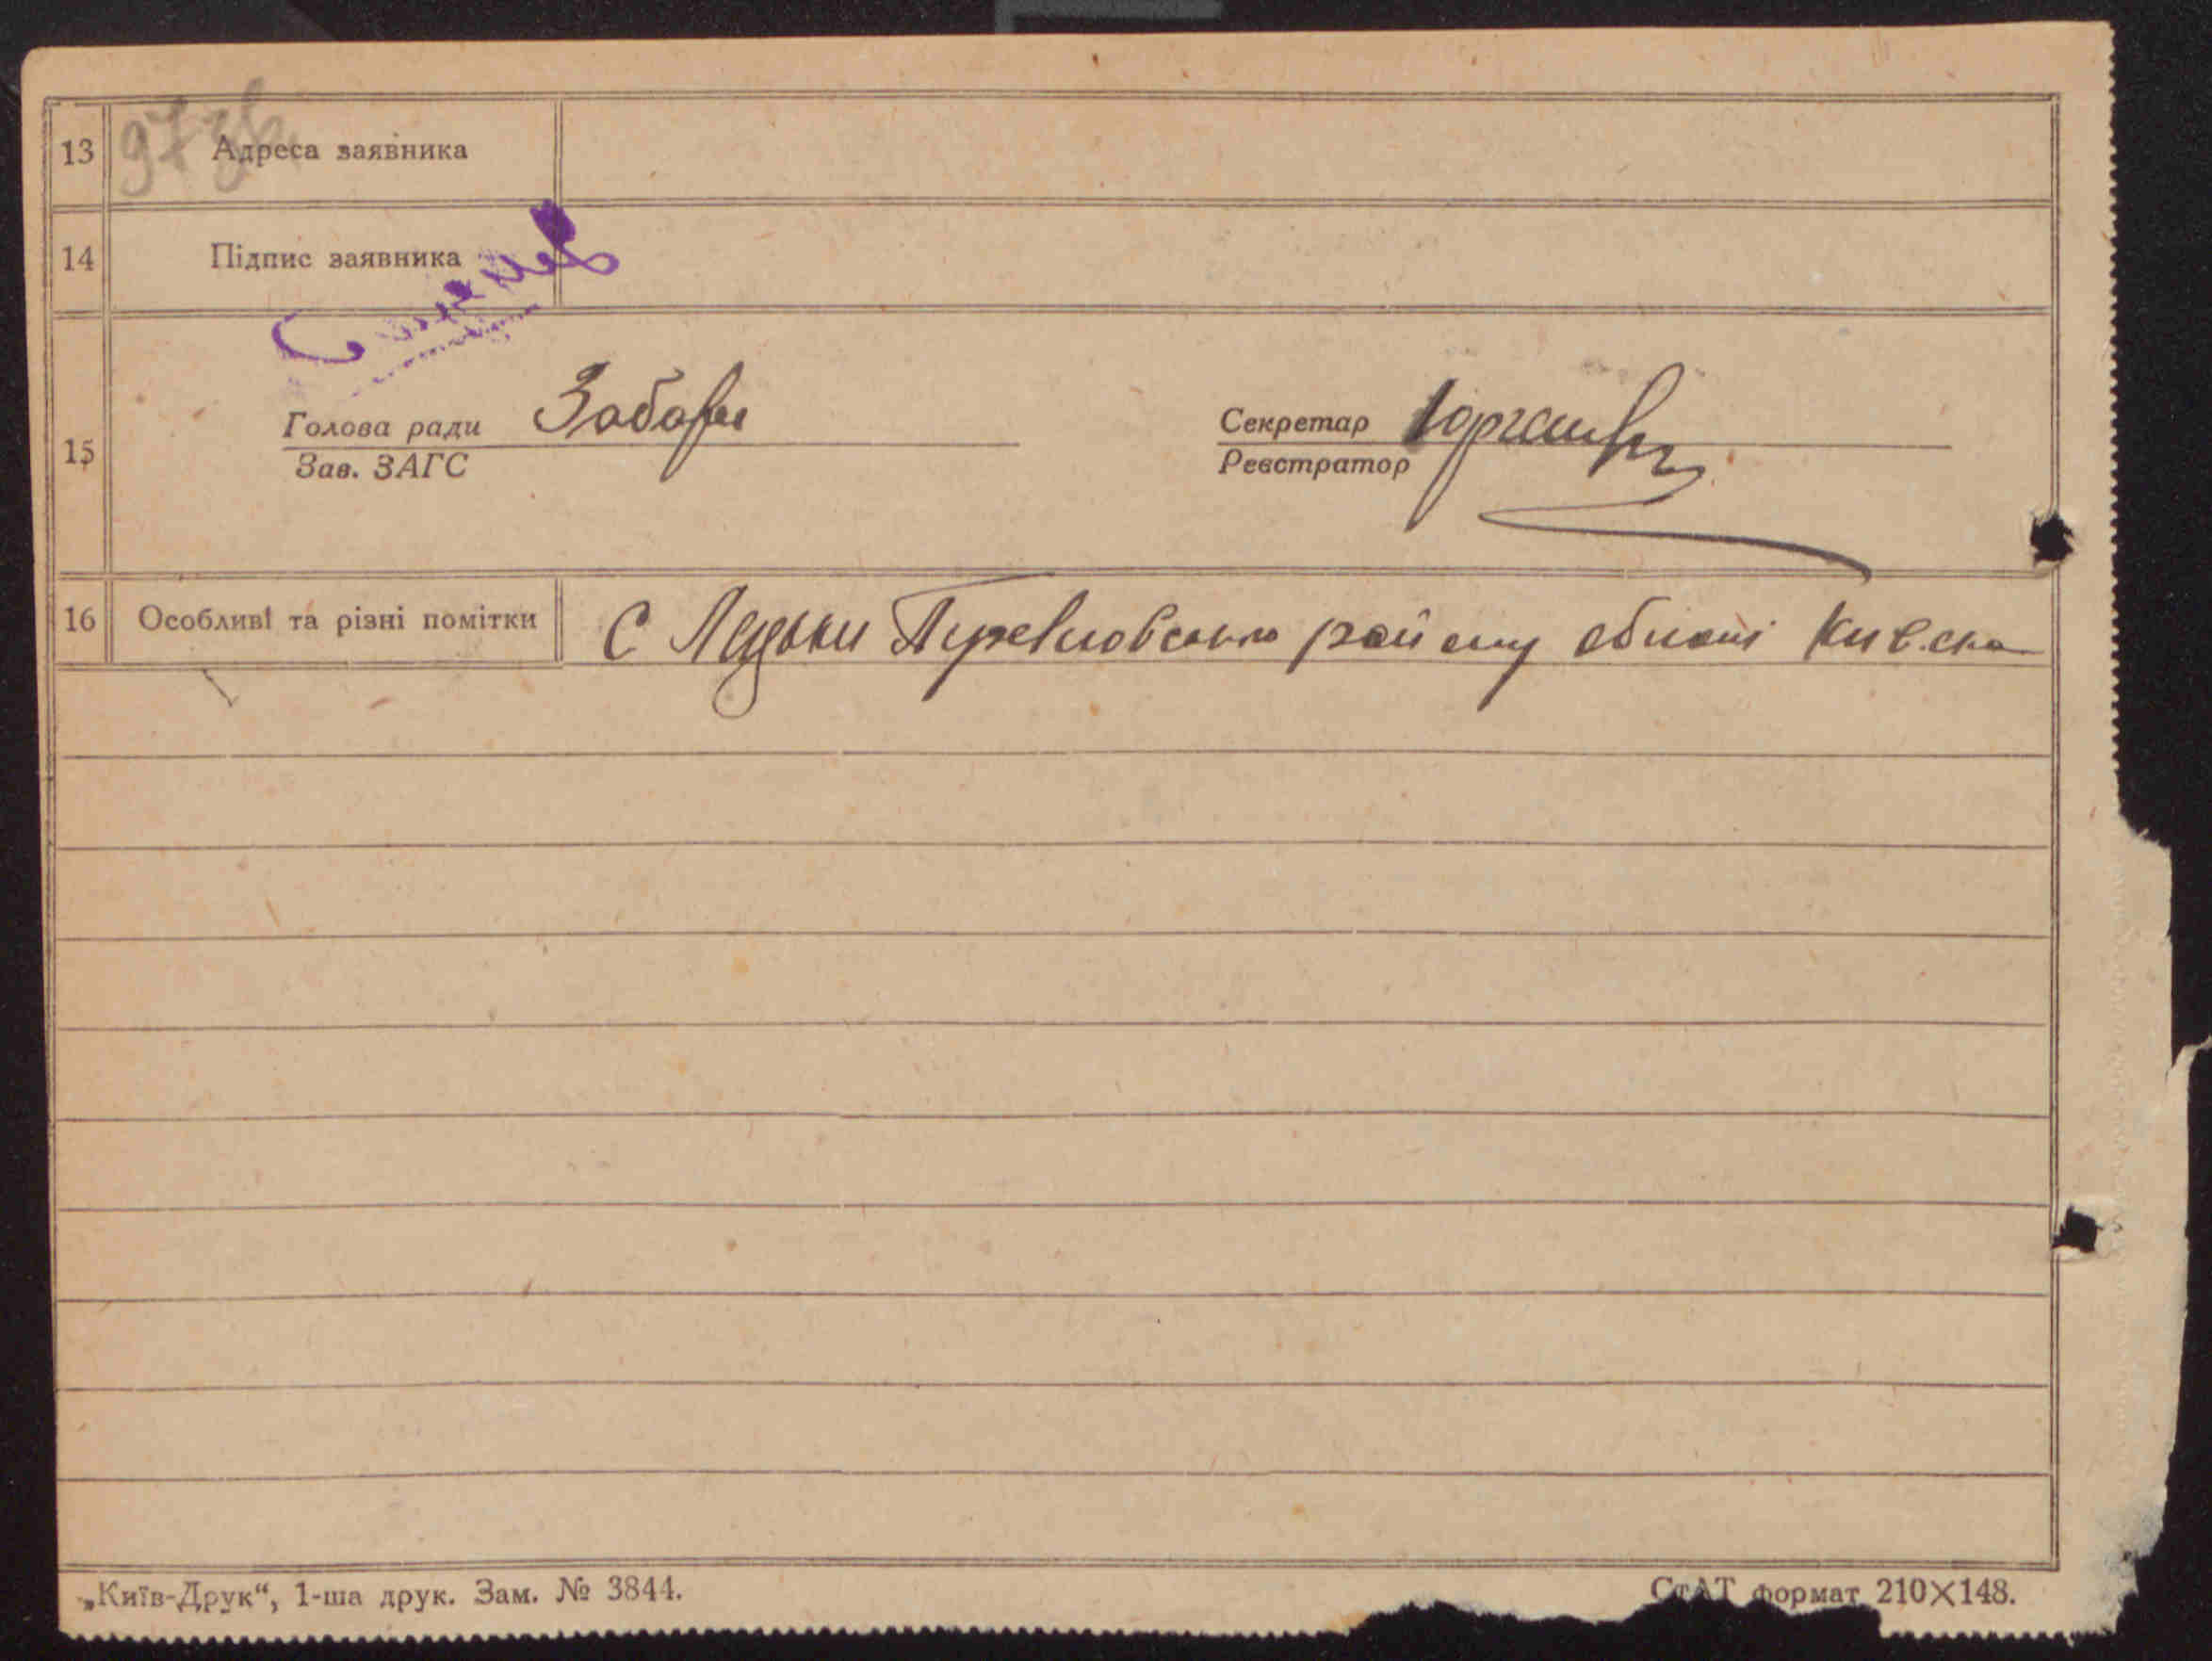 97 зв.
13 Адреса заявника
14 Підпис заявника
15 Голова ради Забара Секретар
Зав. ЗАГС Реєстратор
16 Особливі та різні помітки С району області Київска
„Київ-Друк“, 1-ша друк. Зам. № 3844. СтАТ формат 210×148.